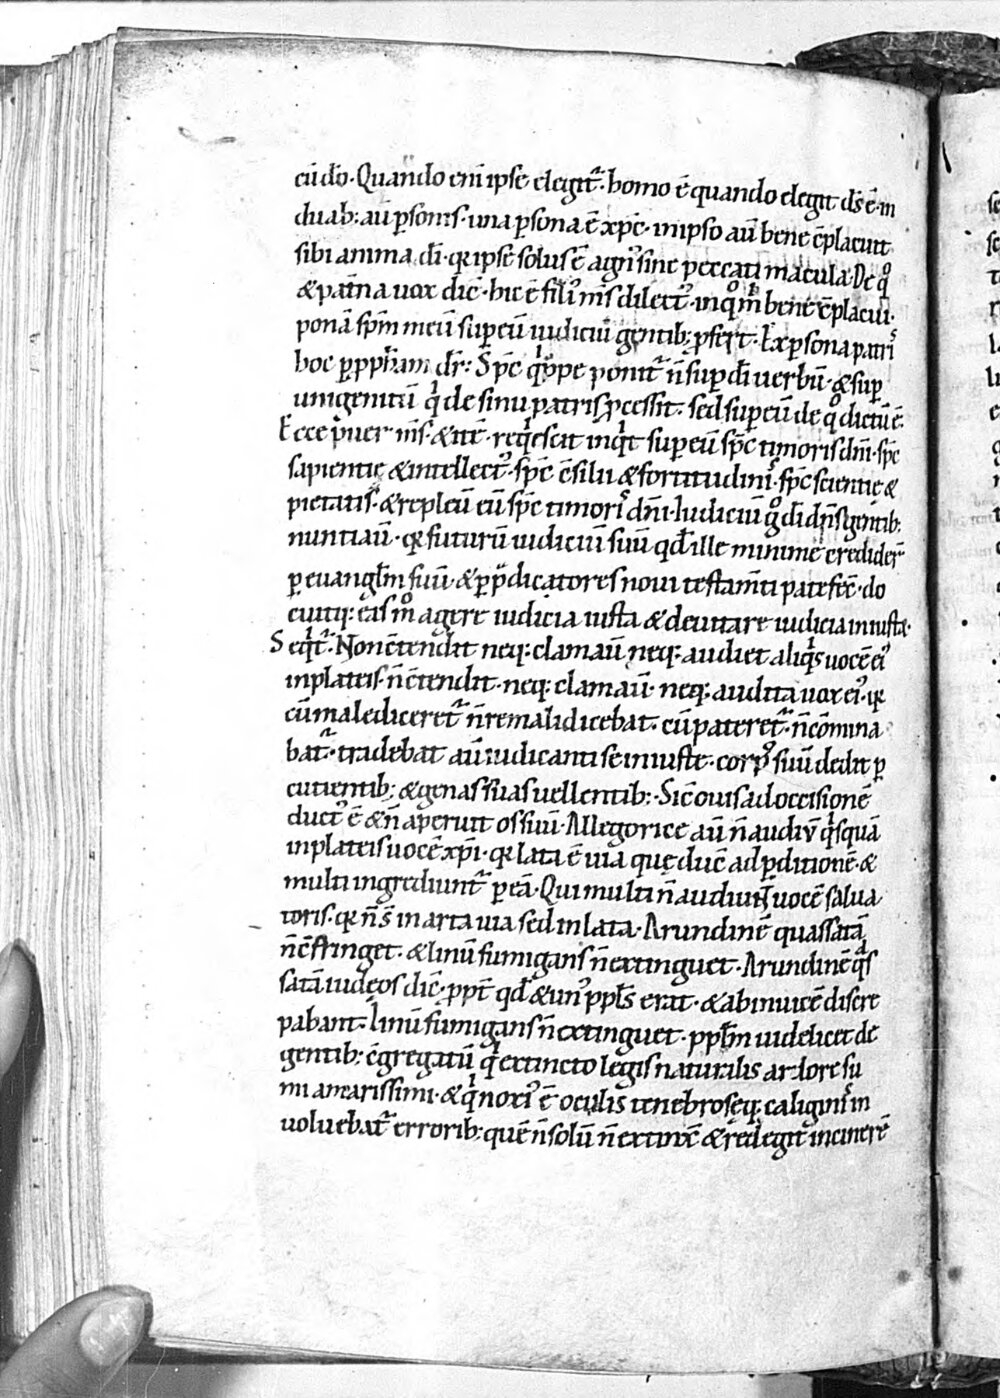 cū dō. Quando enī ipse elegit̄. homo ē quando elegit ds̄ ē. in
duab; aū psonis. una psona ē xpc̄. in ipso aū bene cōplacuit
sibi anima dī. qr ipse solus ē agnꝰ sine peccati macula. De qͦ
& patn̄a uox dic̄. hic ē filiꝰ mīs dilectꝰ. in qͦ m̄ bene cōplacui.
ponā spm̄ meū sup eū iudiciū gentib; pfert. Ex psona patrꝭ
hoc p pphām dr̄. Spc̄ qͥppe ponit̄ n̄ sup dī uerbū. & sup
unigenitū qͥ de sinu patris pcessit. sed sup eū de qͦ dictū ē.
Ecce puer m̄s. & itē. reqͥescit inqͥt sup eū spc̄ timoris dn̄i. spc̄
sapientię & intellectꝰ. spc̄ cōsilii & fortitudinꝭ. spc̄ scientię &
pietatis. & repleū eū spc̄ timorꝭ dn̄i. Iudiciū gͦ dī dn̄s gentib;
nuntiaū. qr futurū iudiciū suū qd̄ ille minime credider̄
p euanglm̄ suū. & p pdicatores noui testam̄ti patefec̄. do
cuitq; eas mͦ agere iudicia iusta & deuitare iudicia iniusta.
Seqͥt̄. Non cōtendet neq; clamaū neq; audiet aliqͥs uocē eiꝰ
in plateis. n̄ cōtendit. neq; clamaū. neq; audita uox eiꝰ. qr
cū malediceret̄ n̄ remaledicebat. cū pateret̄. n̄ cōmina
bat̄. tradebat aū iudicanti se iniuste. corpꝰ suū dedit p
cutientib; & genas suas uellentib;. Sic̄ ouis ad occisionē
ductꝰ ē & n̄ aperuit os suū. Allegorice aū n̄ audiū qͥsquā
in plateis uocē xpī. qr lata ē uia quę duc̄ ad pditionē. &
multi ingrediunt̄ p eā. Qui multi n̄ audiunt uocē salua
toris. qr n̄ s̄ in arta uia sed in lata. Arundinē quassatā
n̄ cōfringet. & linū fumigans n̄ extinguet. Arundinē qͣs
satā iudęos dic̄. ppt̄ qd̄ & unꝰ ppls̄ erat. & abinuicē discre
pabant. Linū fumigans n̄ extinguet. pplm̄ uidelicet de
gentib; cōgregatū qͥ extincto legis naturalis ardore fu
mi amarissimi. & qͥ noxiꝰ ē oculis tenebroseq; caliginꝭ in
uoluebat̄ errorib; quē n̄ solū n̄ extinx̄ & redegit in cinerē